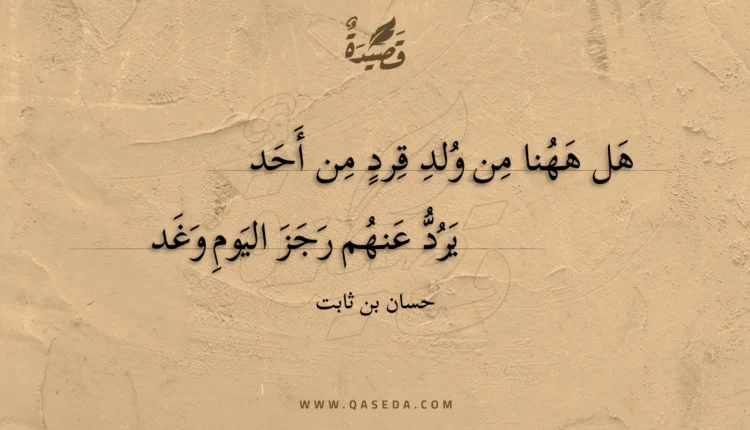 قَصِيدَةٌ
هَل هَهُنا مِن وُلدِ قِردٍ مِن أَحَد
يَرُدُّ عَنهُم رَجَزَ اليَومِ وَغَد
حسان بن ثابت
WWW.QASEDA.COM